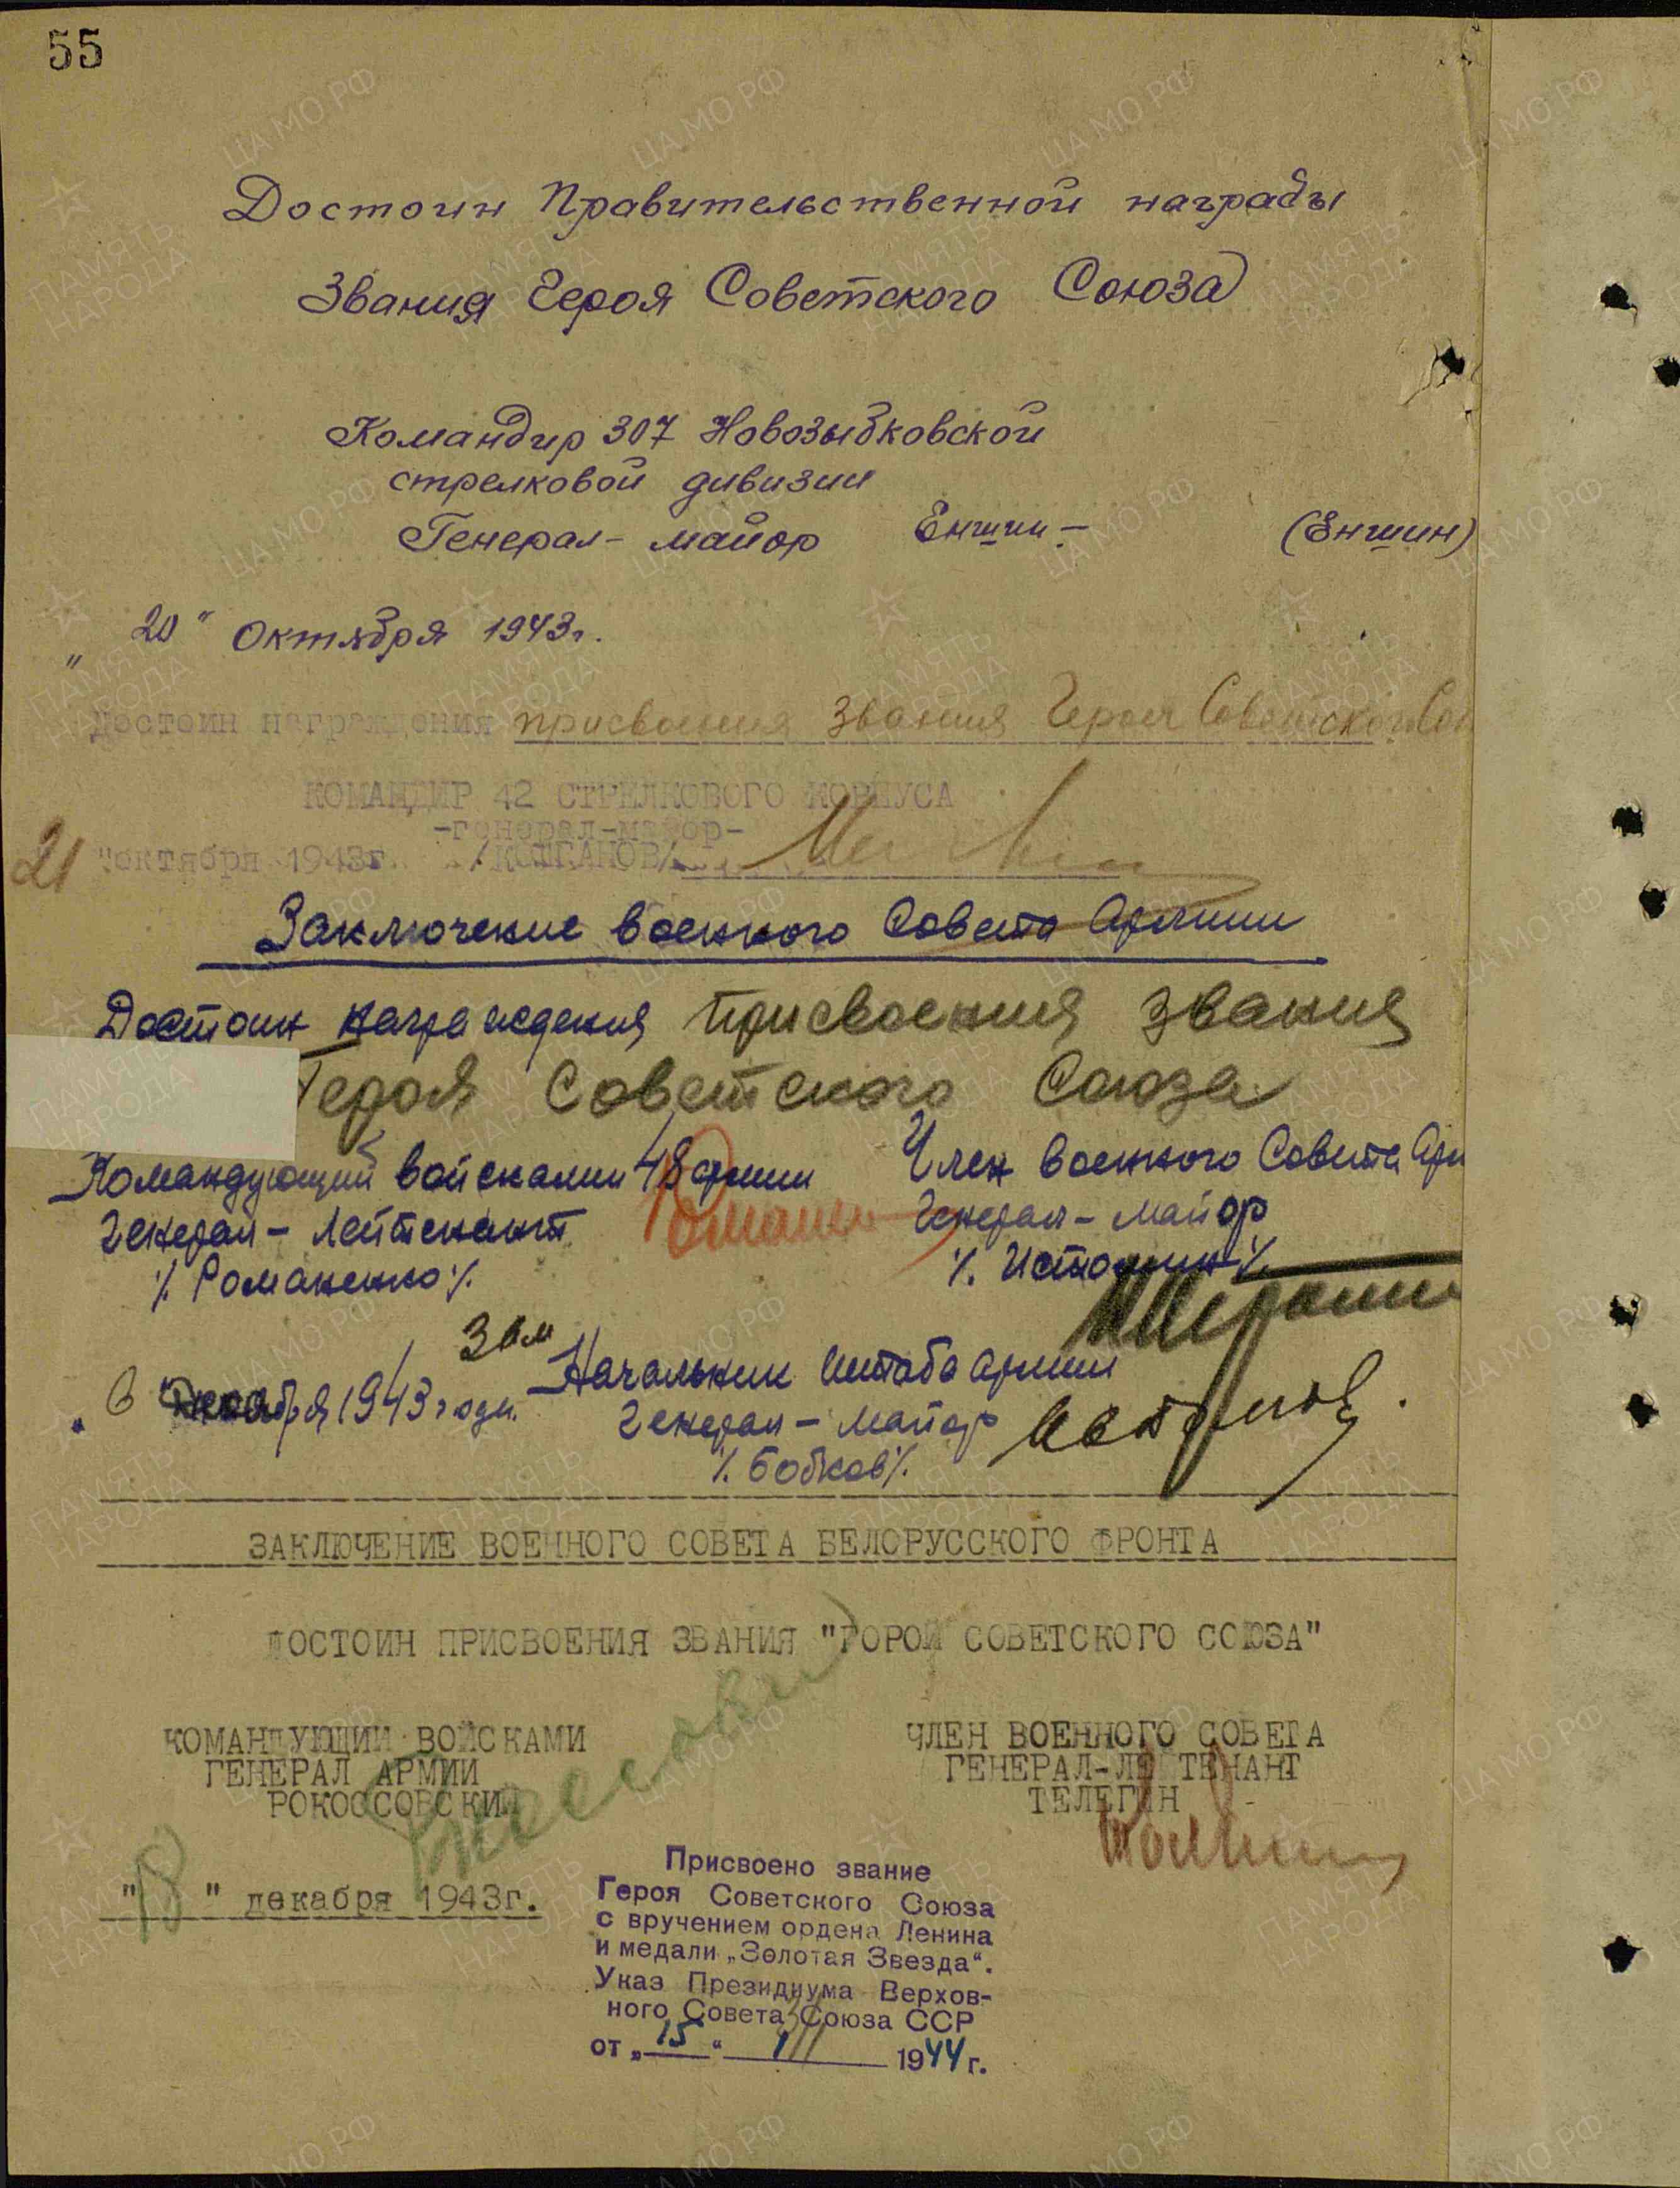 55
Достоин Правительственной награды
Звания Героя Советского Союза
Командир 307 Новозыбковской
стрелковой дивизии
Генерал-майор Еншин (Еншин)
"20" Октября 1943г.
Достоин награждения присвоения звания Героя Советского Сою
КОМАНДИР 42 СТРЕЛКОВОГО КОРПУСА
-генерал-майор-
21 "октября 1943г. /КОЛГАНОВ/
Заключение военного Совета Армии
Достоин награждения присвоения звания
Героя Советского Союза
Командующий войсками 48 армии
Генерал-лейтенант
/. Романенко /.
Член военного Совета Арм
Генерал-майор
/. Истомин /.
"6 декабря 1943 года.
Зам Начальник штаба армии
Генерал-майор
/. Бобков /.
ЗАКЛЮЧЕНИЕ ВОЕННОГО СОВЕТА БЕЛОРУССКОГО ФРОНТА
ДОСТОИН ПРИСВОЕНИЯ ЗВАНИЯ "ГОРОЙ СОВЕТСКОГО СОЮЗА"
КОМАНДУЮЩИЙ ВОЙСКАМИ
ГЕНЕРАЛ АРМИИ
РОКОССОВСКИЙ
ЧЛЕН ВОЕННОГО СОВЕТА
ГЕНЕРАЛ-ЛЕЙТЕНАНТ
ТЕЛЕГИН
"18" декабря 1943г.
Присвоено звание
Героя Советского Союза
с вручением ордена Ленина
и медали „Золотая Звезда“.
Указ Президиума Верхов-
ного Совета Союза ССР
от „15“ 1944 г.
ПАМЯТЬ НАРОДА
ЦА МО РФ